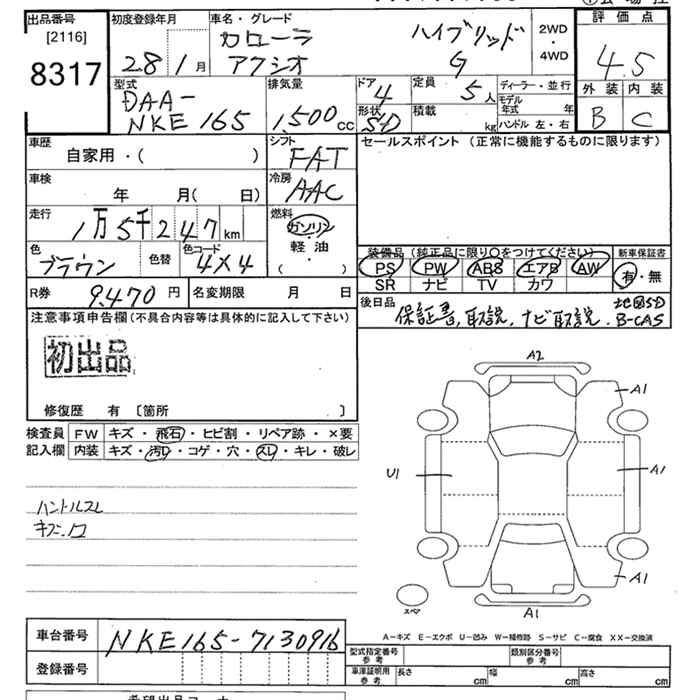 出品番号
[2116]
8317
初度登録年月
28 1月
車名・グレード
カローラ ハイブリッド
アクシオ G
2WD
・
4WD
評価点
4.5
外装 内装
B C
型式
DAA-
NKE165
排気量
1,500cc
ドア
4
定員
5人
形状
SD
積載
kg
ディーラー・並行
モデル年式 年
ハンドル 左・右
車歴
自家用・( )
シフト
FAT
セールスポイント(正常に機能するものに限ります)
車検
年 月( 日)
冷房
AAC
走行
1万5千247km
燃料
ガソリン
軽油
( )
色
ブラウン
色替
色コード
4X4
装備品(純正品に限り○をつけてください)
PS PW ABS エアB AW
SR ナビ TV カワ
新車保証書
有・無
R券
9,470円
名変期限 月 日
後日品
地図SD
保証書,取説,ナビ取説. B-CAS
注意事項申告欄(不具合内容等は具体的に記入して下さい)
初出品
修復歴 有 〔箇所 〕
検査員
記入欄
FW キズ・飛石・ヒビ割・リペア跡・×要
内装 キズ・汚レ・コゲ・穴・スレ・キレ・破レ
ハンドルスレ
A2
A1
U1
A1
A1
A1
スペア
A-キズ E-エクボ U-凹み W-補修跡 S-サビ C-腐食 XX-交換済
車台番号
NKE165-7130916
登録番号
型式指定番号
参考
類別区分番号
参考
車庫証明用
参考
長さ cm 幅 cm 高さ cm